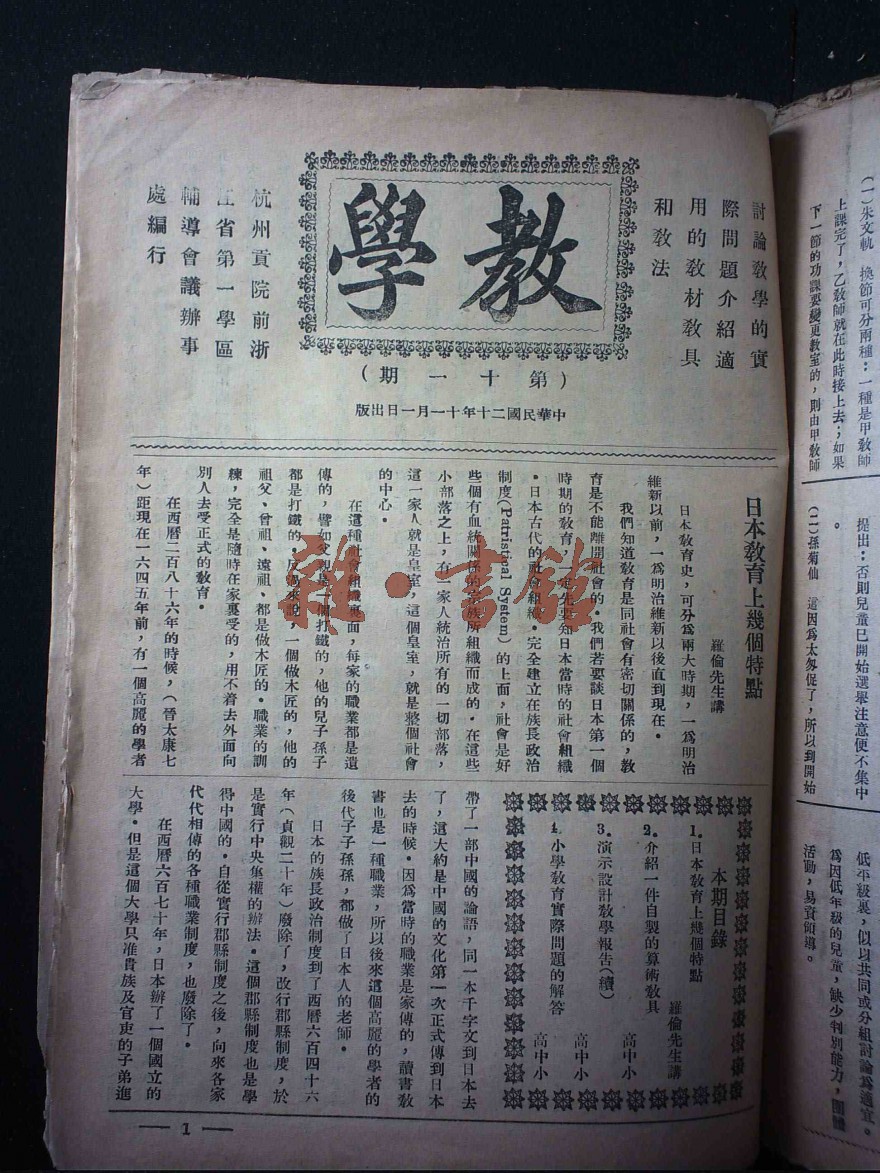 討論敎學的實
際問題介紹適
用的敎材敎具
和敎法
敎學
杭州貢院前浙
江省第一學區
輔導會議辦事
處編行
(第十一期)
中華民國二十年十一月一日出版
日本敎育上幾個特點
羅倫先生講
日本敎育史，可分爲兩大時期，一爲明治
維新以前，一爲明治維新以後直到現在。
我們知道敎育是同社會有密切關係的，敎
育是不能離開社會的。我們若要談日本第一個
時期的敎育，一定先要知日本當時的社會組織
。日本古代的社會組織。完全建立在族長政治
制度(Patristical System)的上面，社會是好
些個有血統關係的家族所組織而成的。在這些
小部落之上，有一家人統治所有的一切部落，
這一家人就是皇室，這個皇室，就是整個社會
的中心。
在這種社會組織裏面，每家的職業都是遺
傳的，譬如父親是一個打鐵的，他的兒子孫子
都是打鐵的。反過來說，一個做木匠的，他的
祖父、曾祖、遠祖、都是做木匠的。職業的訓
練，完全是隨時在家裏受的，用不着去外面向
別人去受正式的敎育。
在西曆二百八十六年的時候，(晉太康七
年)距現在一六四五年前，有一個高麗的學者
本期目錄
1.日本敎育上幾個特點
羅倫先生講
2.介紹一件自製的算術敎具
高中小
3.演示設計敎學報告(續)
高中小
4.小學敎育實際問題的解答
帶了一部中國的論語，同一本千字文到日本去
了，這大約是中國的文化第一次正式傳到日本
去的時候。因爲當時的職業是家傳的，讀書敎
書也是一種職業，所以後來這個高麗的學者的
後代子子孫孫，都做了日本人的老師。
日本的族長政治制度到了西曆六百四十六
年(貞觀二十年)廢除了，改行郡縣制度，於
是實行中央集權的辦法。這個郡縣制度也是學
得中國的。自從實行郡縣制度之後，向來各家
代代相傳的各種職業制度，也廢除了。
在西曆六百七十年，日本辦了一個國立的
大學。但是這個大學只准貴族及官吏的子弟進
1
雜·書館
(一)朱文軌　換節可分兩種：一種是甲敎師
上課完了，乙敎師就在此時接上去；如果
下一節的功課要變更敎室的，則由甲敎師
提出：否則兒童已開始選舉注意便不集中
。
(二)孫菊仙　這因爲太匆促了，所以到開始
低年級裏，似以共同或分組討論爲適宜。
爲因低年級的兒童，缺少判別能力，團體
活動，易資領導。